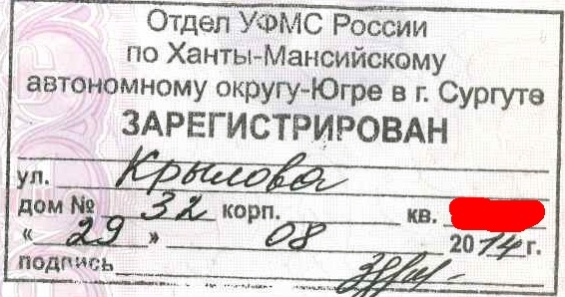 Отдел УФМС России
по Ханты-Мансийскому
автономному округу-Югре в г. Сургуте
ЗАРЕГИСТРИРОВАН
ул. Крылова
дом № 32 корп. кв.
« 29 » 08 2014 г.
подпись